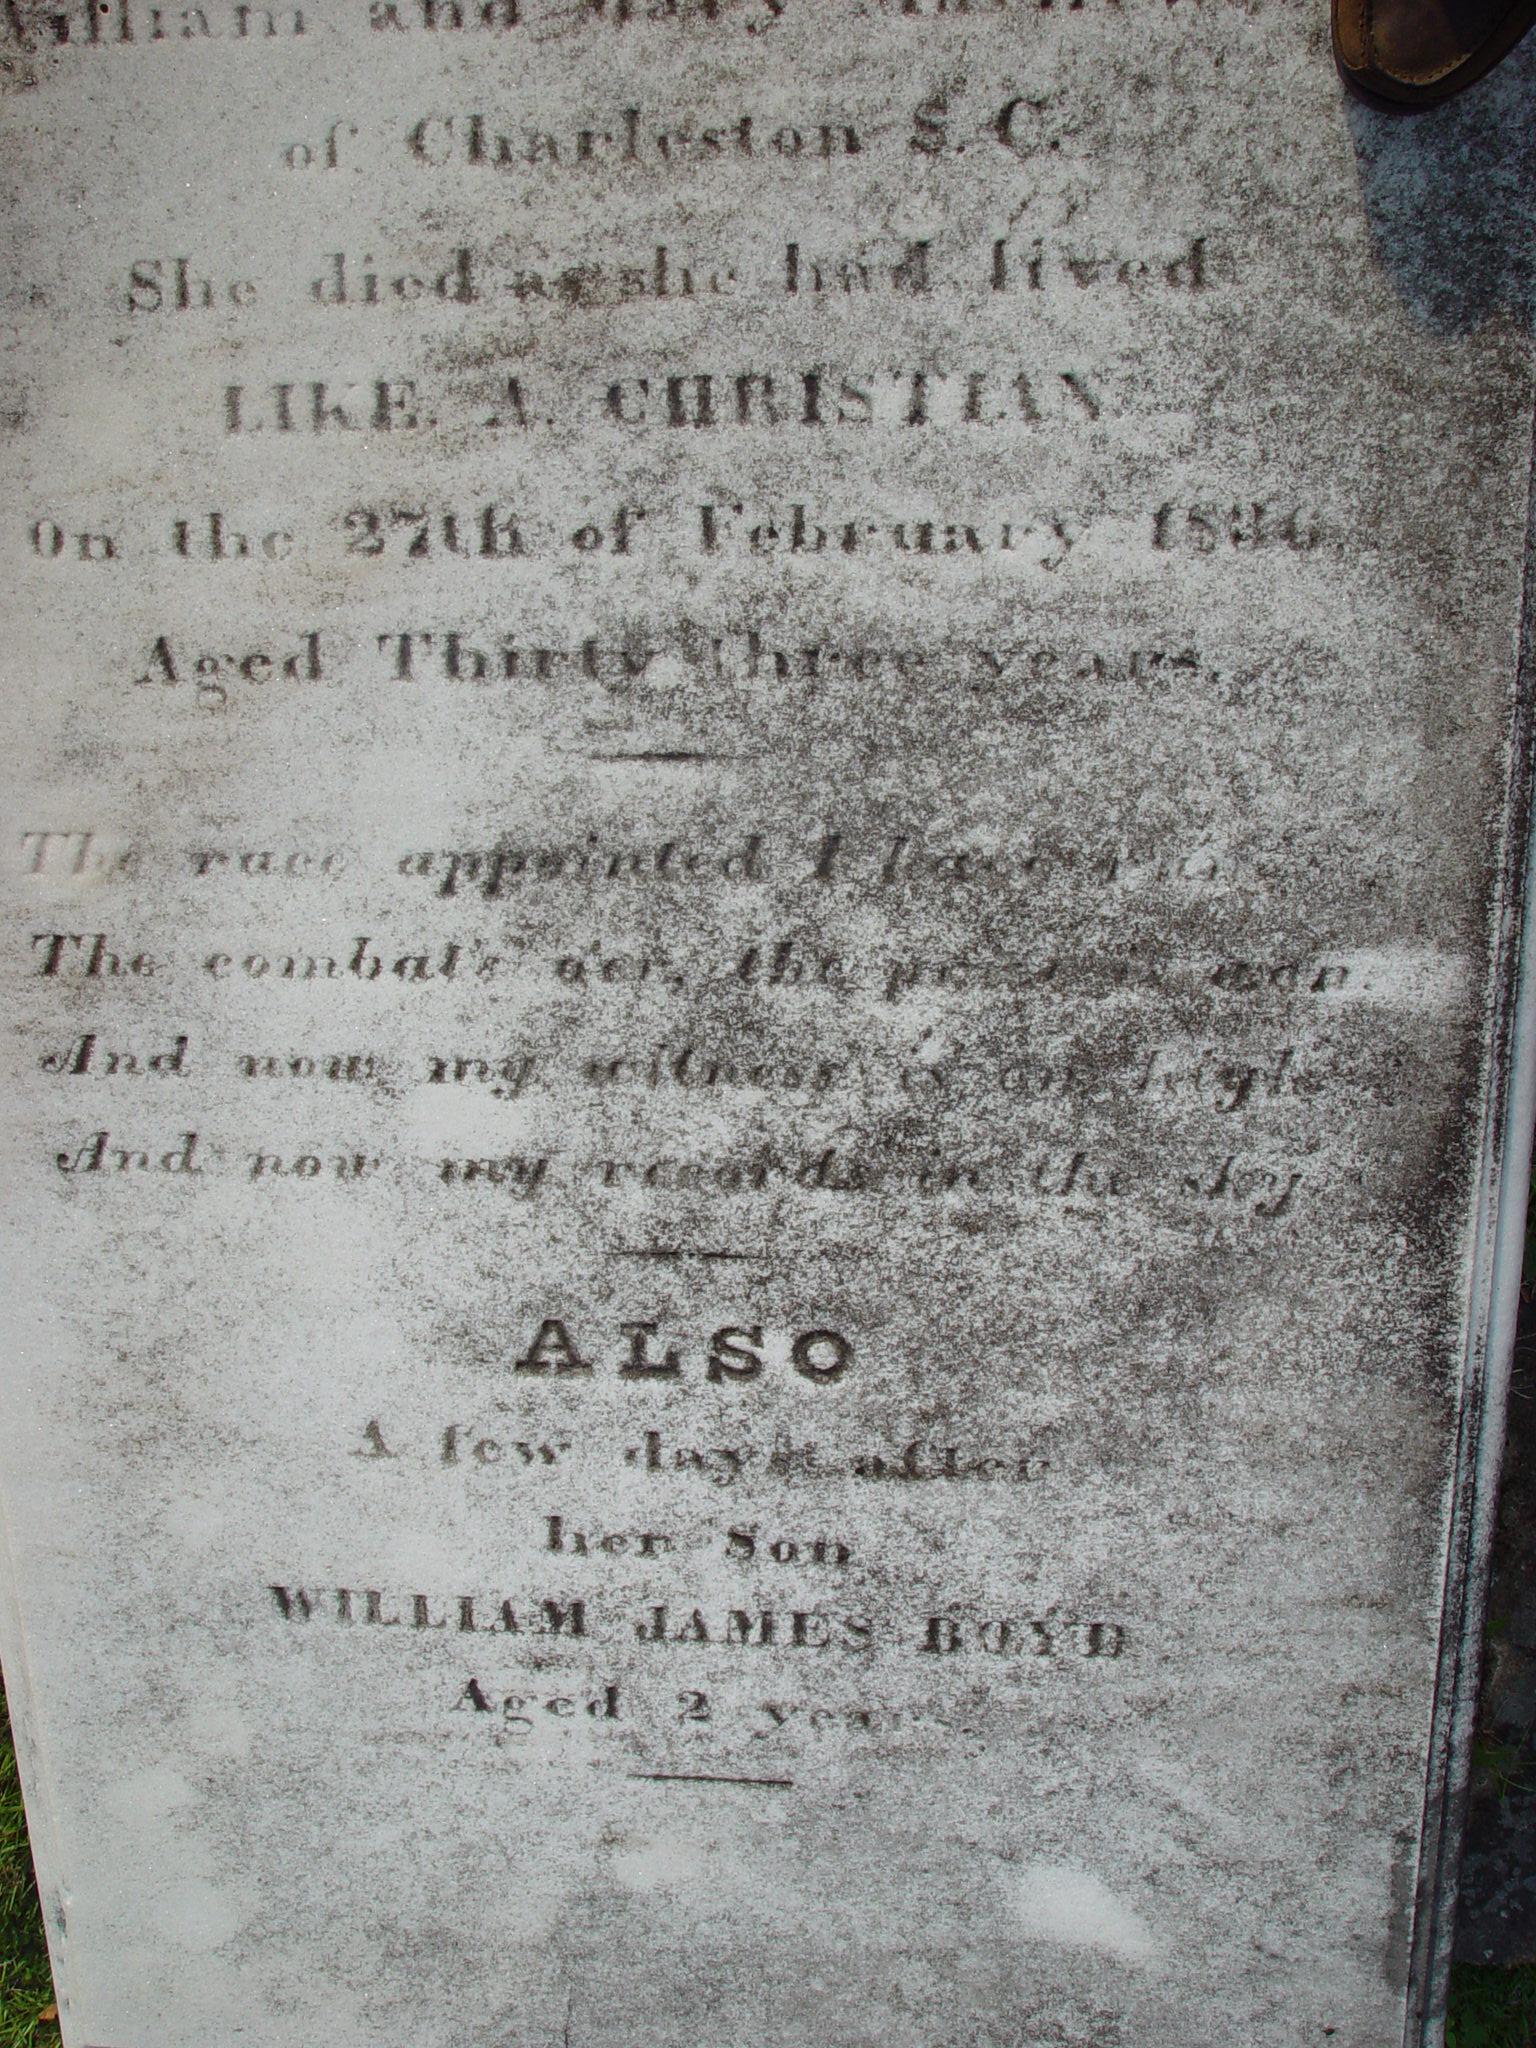 William and Mary
of Charleston S. C.
She died as she had lived
LIKE A CHRISTIAN
On the 27th of February 1836,
Aged Thirty three years.
The race appointed I have run
The combat's o'er, the prize is won,
And now my witness is on high
And now my records in the sky
ALSO
A few days after
her Son
WILLIAM JAMES BOYD
Aged 2 years.